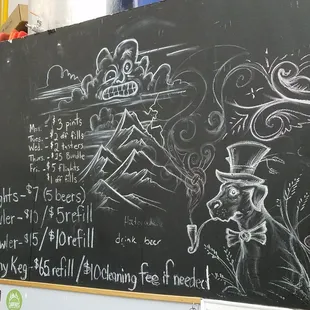 Mon - $3 pints
Tues - $2 off fills
Wed. - $2 tasters
Thurs. - $25 Bundle
Fri. - $5 flights
$1 off fills
ghts - $7 (5 beers)
wler - $10 / $5 refill
wler - $15 / $10 refill
drink beer
ny Keg - $65 refill / $10 cleaning fee if needed